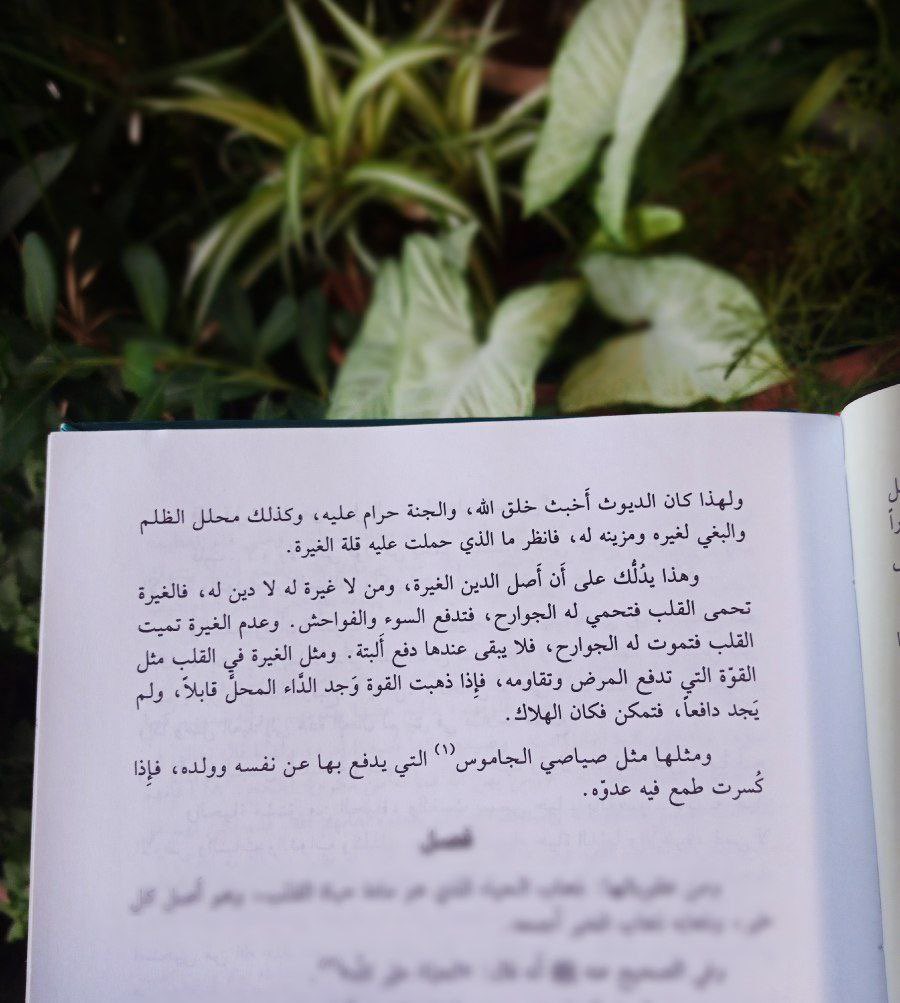 ولهذا كان الديوث أَخبث خلق الله، والجنة حرام عليه، وكذلك محلل الظلم
والبغي لغيره ومزينه له، فانظر ما الذي حملت عليه قلة الغيرة.
وهذا يدُلُّك على أَن أَصل الدين الغيرة، ومن لا غيرة له لا دين له، فالغيرة
تحمى القلب فتحمي له الجوارح، فتدفع السوء والفواحش. وعدم الغيرة تميت
القلب فتموت له الجوارح، فلا يبقى عندها دفع أَلبتة. ومثل الغيرة في القلب مثل
القوّة التي تدفع المرض وتقاومه، فإِذا ذهبت القوة وَجد الدَّاء المحلَّ قابلاً، ولم
يَجد دافعاً، فتمكن فكان الهلاك.
ومثلها مثل صياصي الجاموس(١) التي يدفع بها عن نفسه وولده، فإِذا
كُسرت طمع فيه عدوّه.
فصل
ومن عقوباتها: ذهاب الحياء الذي هو مادة حياة القلب، وهو أَصل كل